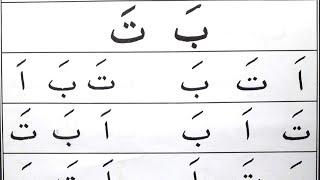 بَ تَ
اَ تَ بَ تَ بَ اَ
تَ اَ بَ اَ بَ تَ